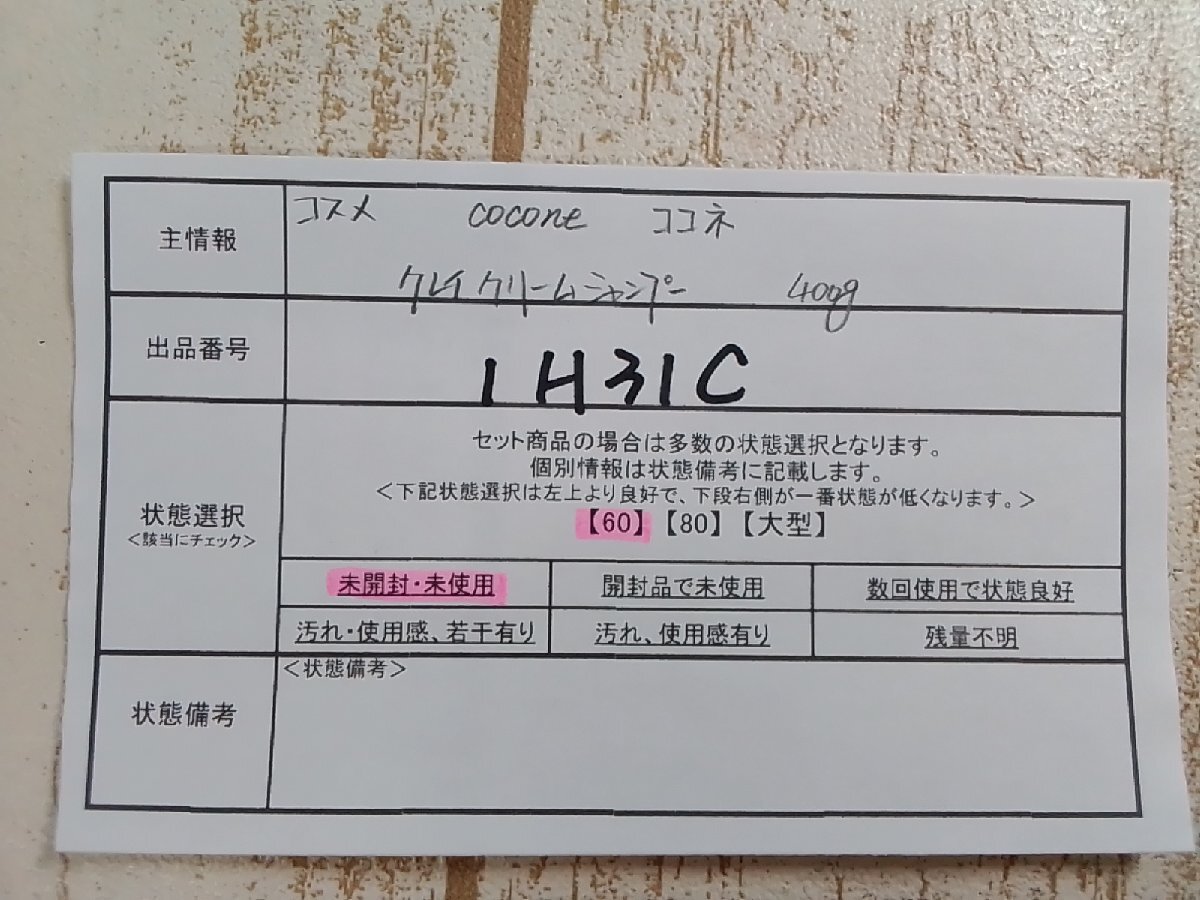 主情報
コスメ cocone ココネ
クレイクリームシャンプー 400g
出品番号
1H31C
状態選択
＜該当にチェック＞
セット商品の場合は多数の状態選択となります。
個別情報は状態備考に記載します。
＜下記状態選択は左上より良好で、下段右側が一番状態が低くなります。＞
【60】【80】【大型】
未開封・未使用 開封品で未使用 数回使用で状態良好
汚れ・使用感、若干有り 汚れ、使用感有り 残量不明
状態備考
＜状態備考＞